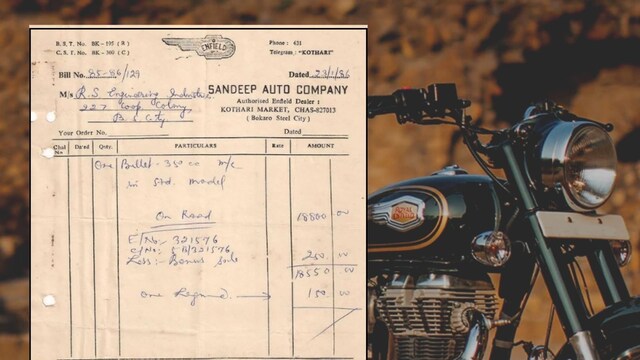 B. S. T. No. BK-195 ( R )
C. S. T. No. BK-380 ( C )
ENFIELD
Phone : 631
Telegram : "KOTHARI"
Bill No. 85-86/129
Dated 23/1/86
M/s R.S. Engineering Industries
SANDEEP AUTO COMPANY
Authorised Enfield Dealer :
KOTHARI MARKET, CHAS-827013
( Bokaro Steel City )
227 Coop. Colony
B.S. City
Your Order No.
Dated
Chal No
Dated
Qnty.
PARTICULARS
Rate
AMOUNT
One Bullet - 350 cc m/c
in Std. model
On Road
18800 00
E/No:- 321576
C/No:- 5B/321576,
Less :- Bonus Sale
250 00
18550 00
One Legguard
150 00
ROYAL ENFIELD